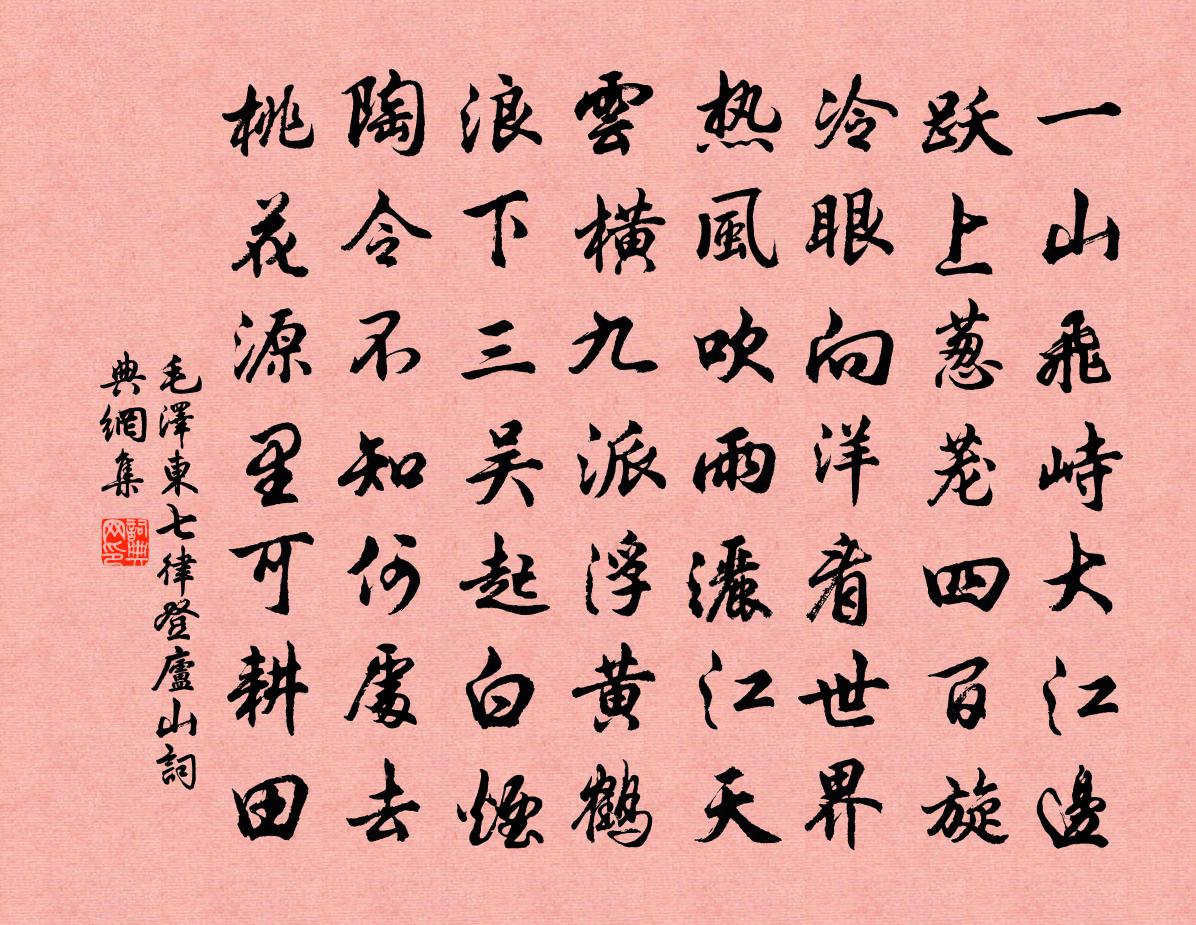 一山飛峙大江邊
跃上葱茏四百旋
冷眼向洋看世界
热風吹雨灑江天
雲横九派浮黄鶴
浪下三吴起白煙
陶令不知何處去
桃花源里可耕田
毛澤東七律登廬山詞
典網集
詞典
网印